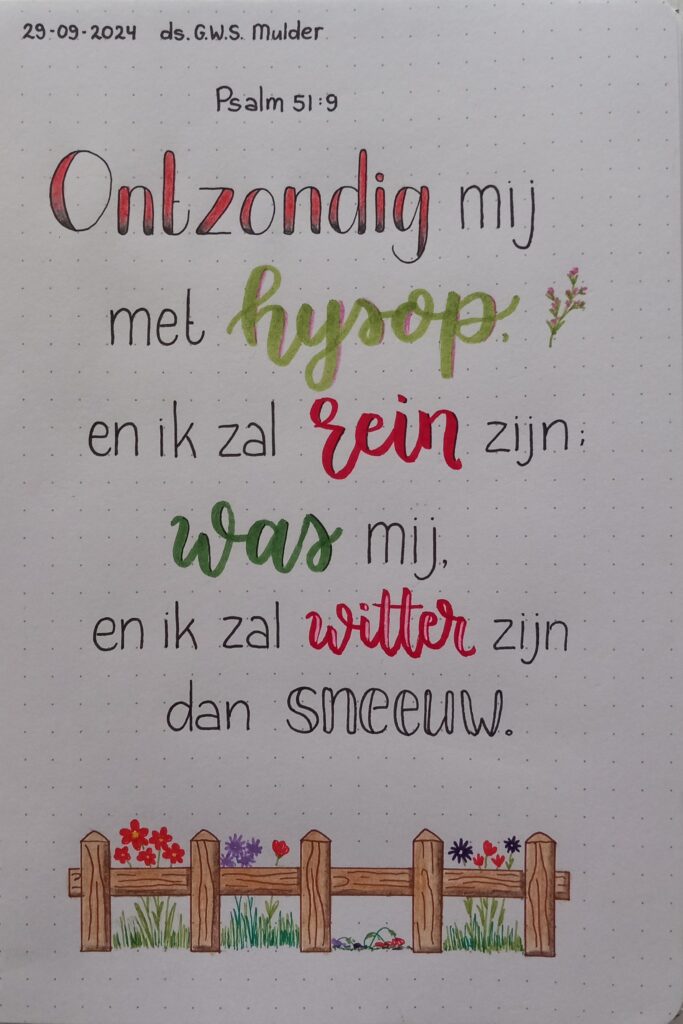 29-09-2024 ds. G.W.S. Mulder
Psalm 51:9
Ontzondig mij
met hysop,
en ik zal rein zijn;
was mij,
en ik zal witter zijn
dan sneeuw.